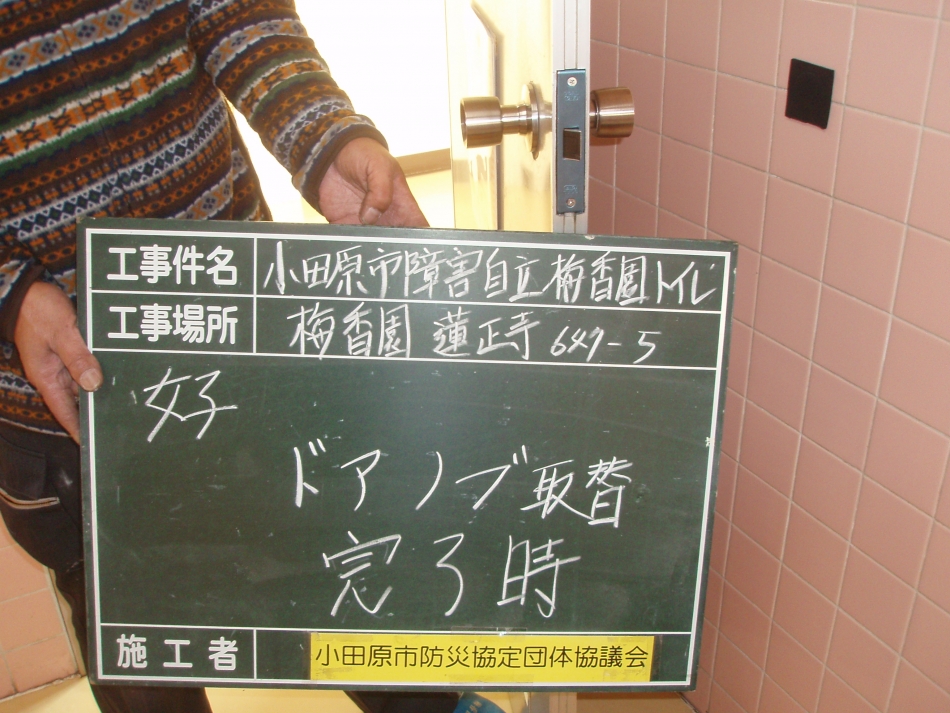 工事件名 小田原市障害自立梅香園トイレ
工事場所 梅香園 蓮正寺 647-5
好
ドアノブ取替
完了時
施工者 小田原市防災協定団体協議会